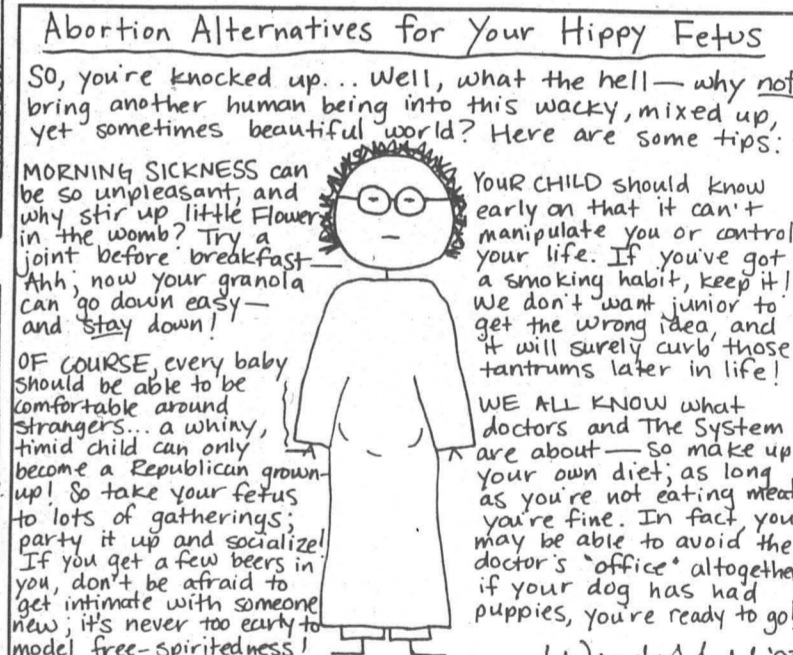 Abortion Alternatives for Your Hippy Fetus
SO, you're knocked up... Well, what the hell— why not
bring another human being into this wacky, mixed up,
yet sometimes beautiful world? Here are some tips:
MORNING SICKNESS can
be so unpleasant, and
why stir up little Flower
in the womb? Try a
joint before breakfast—
Ahh, now your granola
can go down easy—
and stay down!
OF COURSE, every baby
should be able to be
comfortable around
strangers... a whiny,
timid child can only
become a Republican grown-
up! So take your fetus
to lots of gatherings;
party it up and socialize!
If you get a few beers in
you, don't be afraid to
get intimate with someone
new; it's never too early to
model free-spiritedness!
YOUR CHILD should know
early on that it can't
manipulate you or control
your life. If you've got
a smoking habit, keep it!
We don't want junior to
get the wrong idea, and
it will surely curb those
tantrums later in life!
WE ALL KNOW what
doctors and The System
are about— So make up
your own diet; as long
as you're not eating meat
you're fine. In fact, you
may be able to avoid the
doctor's "office" altogether
if your dog has had
puppies, you're ready to go!